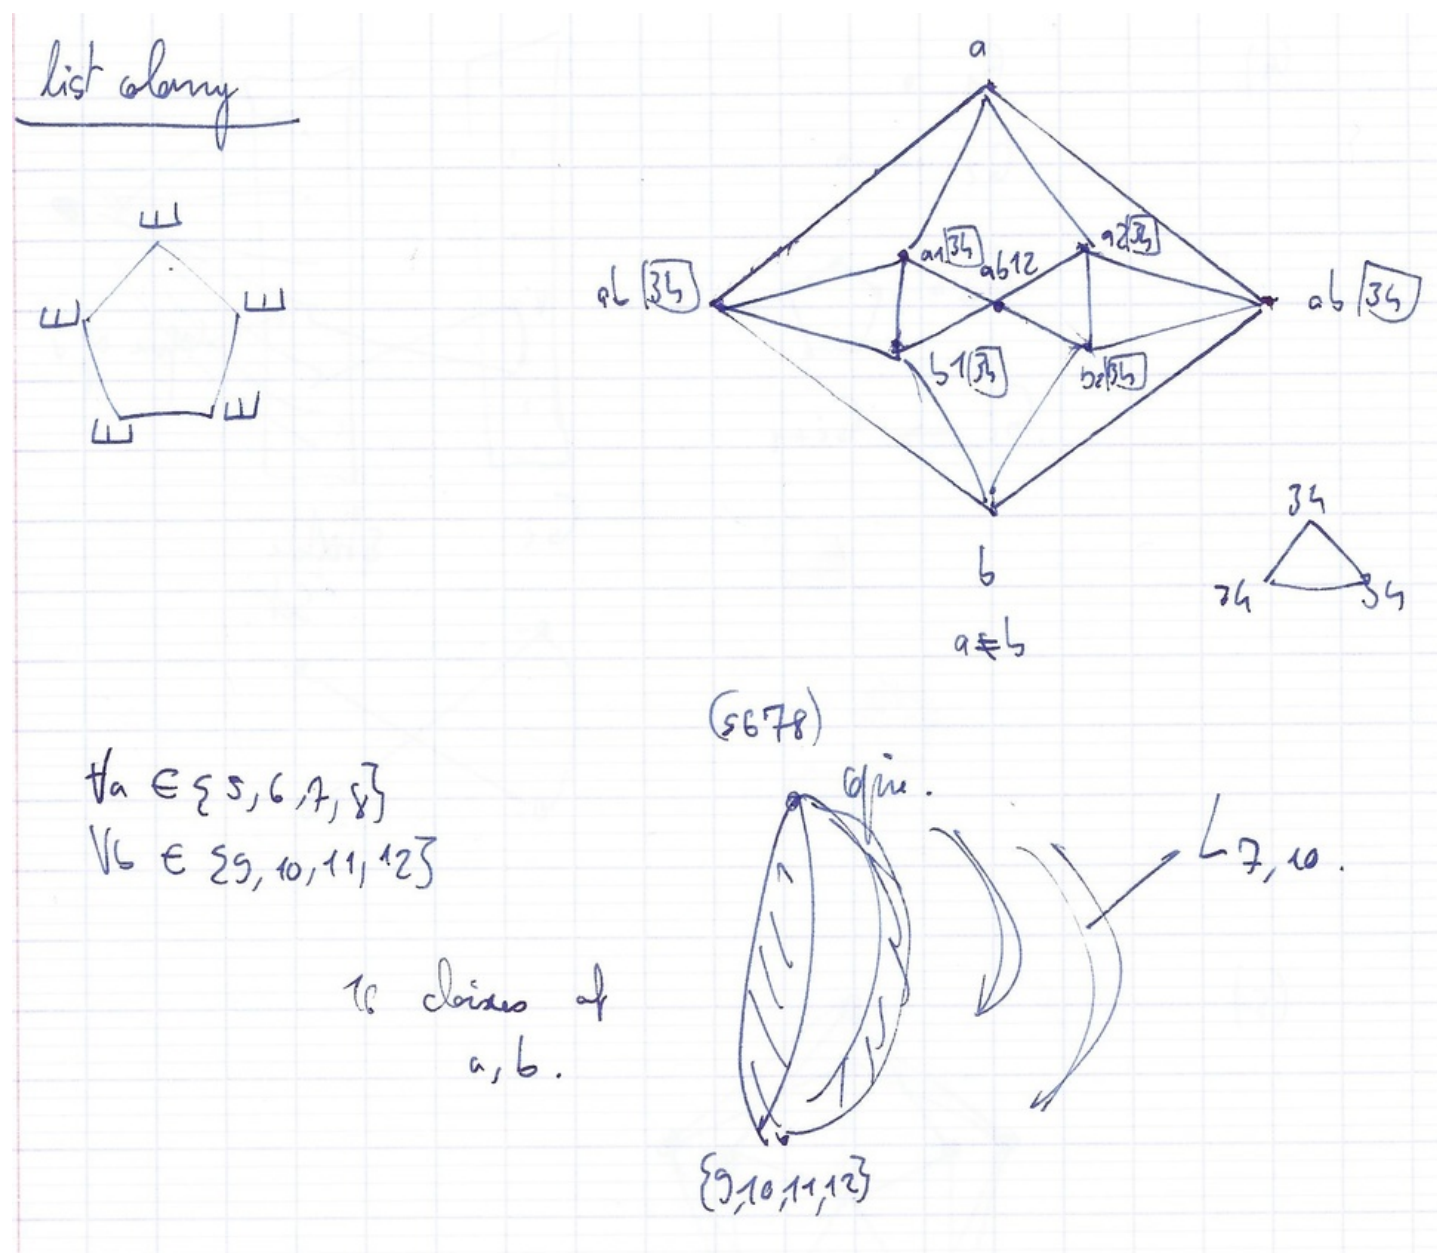 list colouring
a
a1 34
a2 34
ab12
ab 34
ab 34
b1 34
b2 34
b
34
34
34
a ≠ b
(5678)
∀a ∈ {5,6,7,8}
∀b ∈ {9,10,11,12}
L7,10.
16 choices of
a, b.
{9,10,11,12}